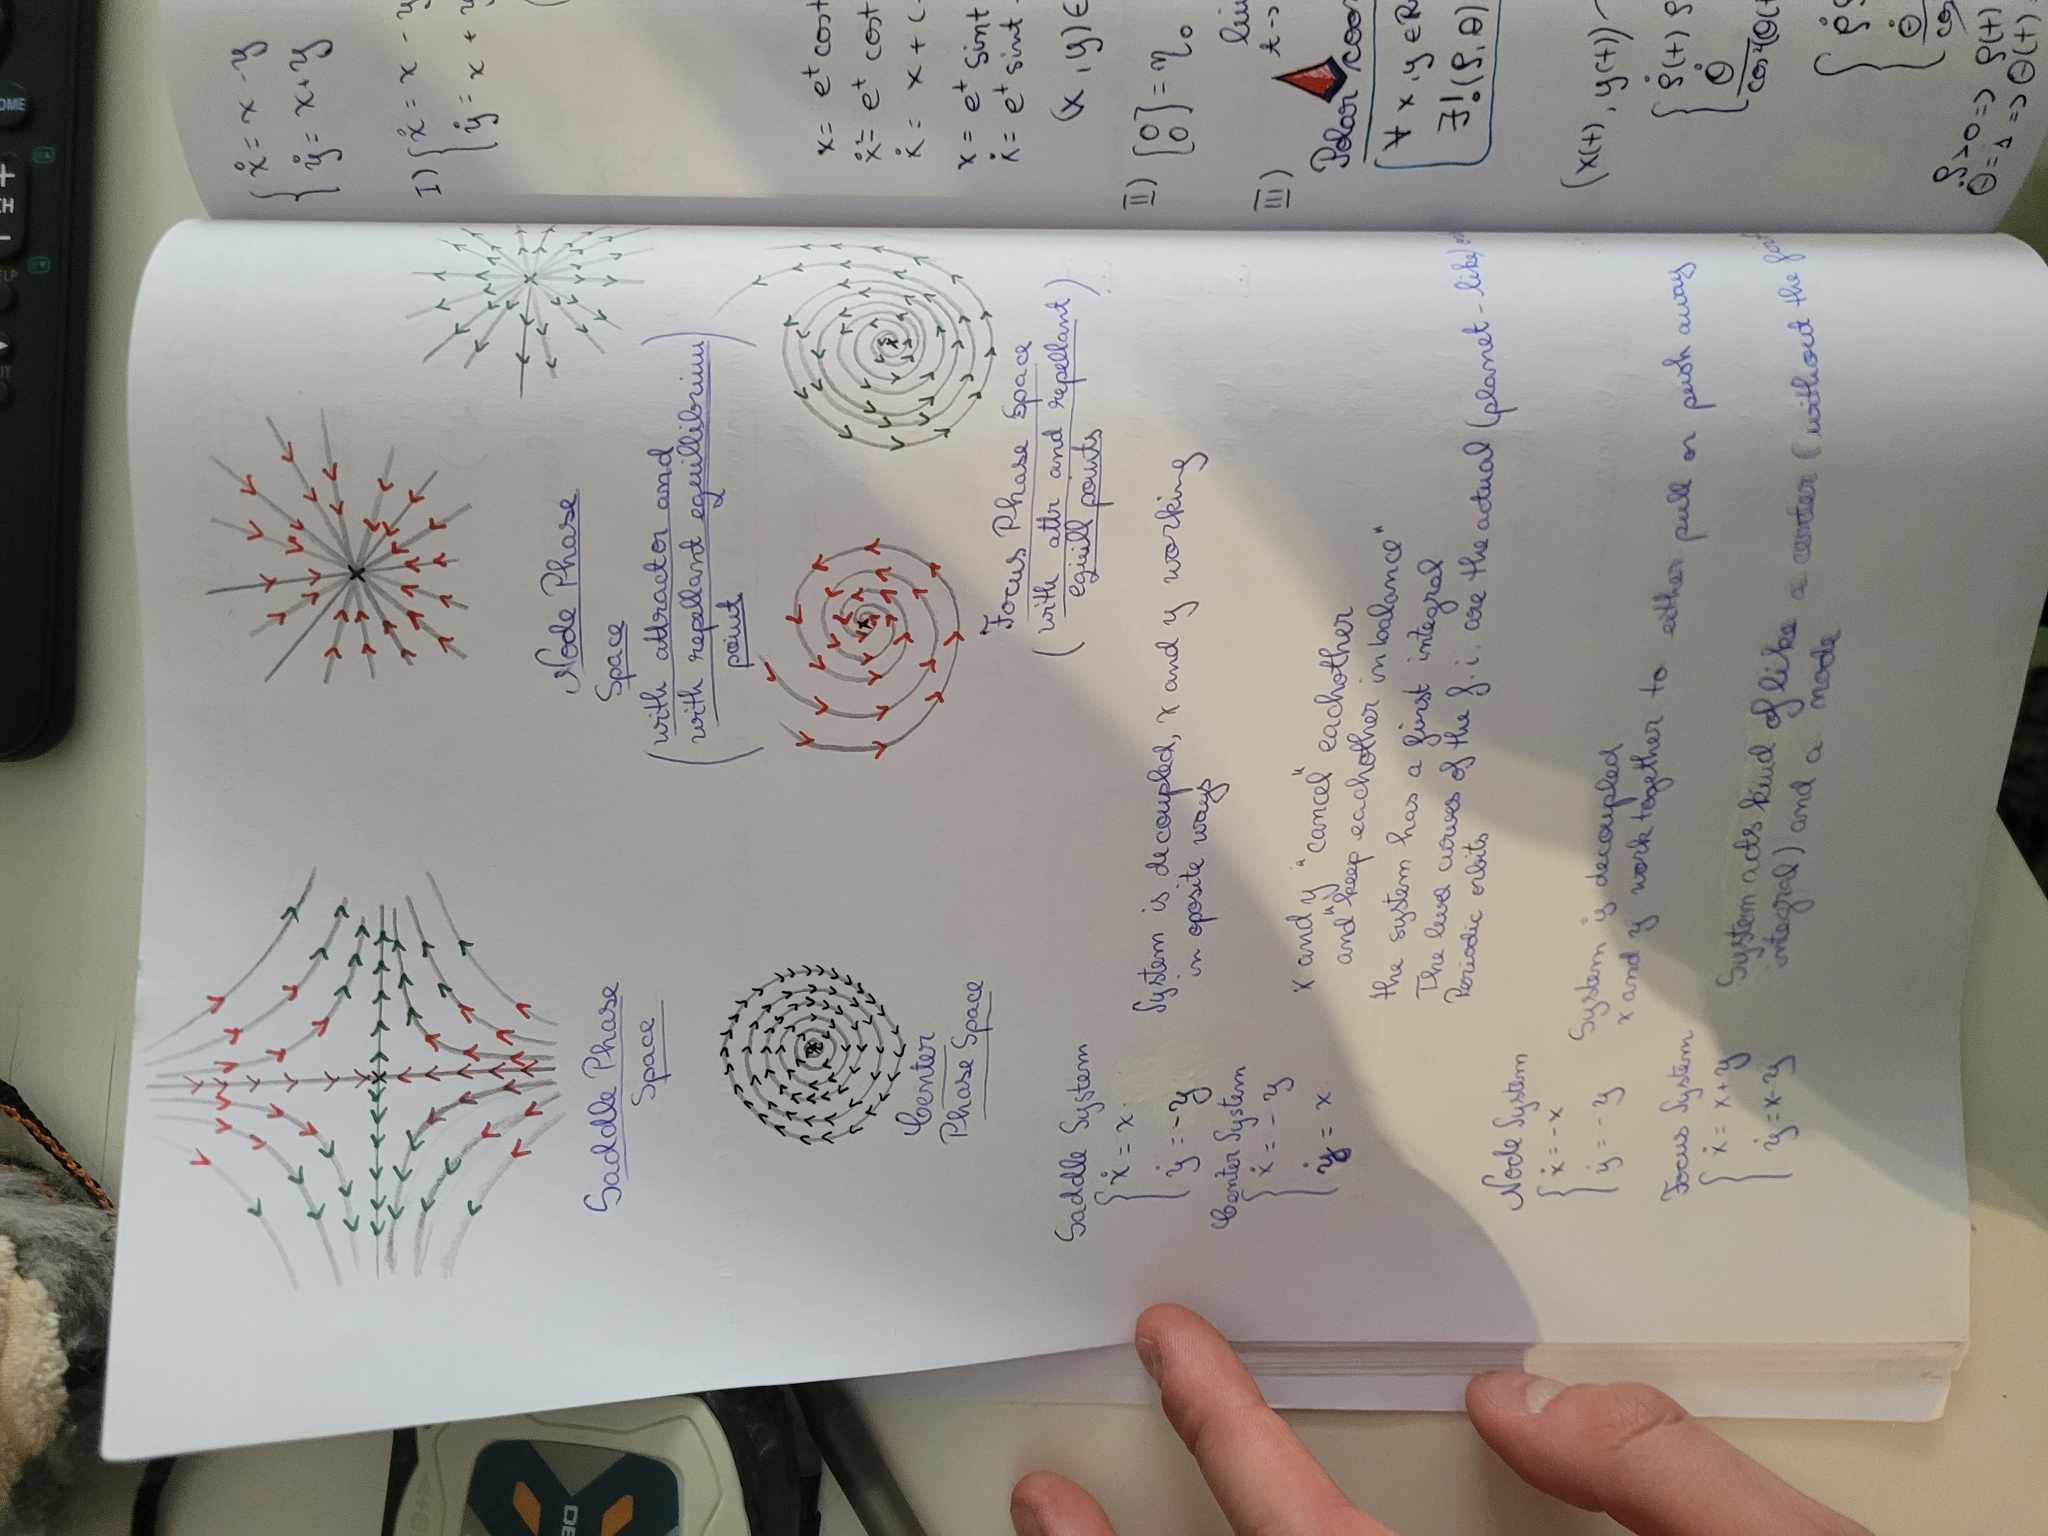 Saddle Phase
Space
Node Phase
Space
(with attractor and
with repellant equillibrium
point)
Center
Phase Space
Focus Phase Space
(with attr and repellant
equill points)
Saddle System
{ ẋ = x
ẏ = -y
System is decoupled, x and y working
in oposite ways
Center System
{ ẋ = -y
ẏ = x
x and y "cancel" eachother
and "keep eachother in balance"
the system has a first integral
The level curves of the f.i. are the actual (planet-like)
Periodic orbits
Node System
{ ẋ = -x
ẏ = -y
System is decoupled
x and y work together to either pull or push away
Focus System
{ ẋ = x+y
ẏ = x-y
System acts kind of like a center (without the
integral) and a node
{ ẋ = x-y
ẏ = x+y
I) { ẋ = x - y
ẏ = x + y
x = e^t cost
ẋ = e^t cost
ẋ = x + (-
x = e^t sint
ẋ = e^t sint -
(x, y) ∈
II) [0 0] = η₀
lim
t->
III)
Polar coor
∀ x, y ∈ R
∃! (ρ, θ)
(x(t), y(t))
{ ρ̇(t) ρ
θ̇
cos²(θ(t
{ ρ̇ρ
θ̇
co
ρ̇>0 => ρ(t)
θ̇=1 => θ(t) =
OME
+
CH
-
ELP